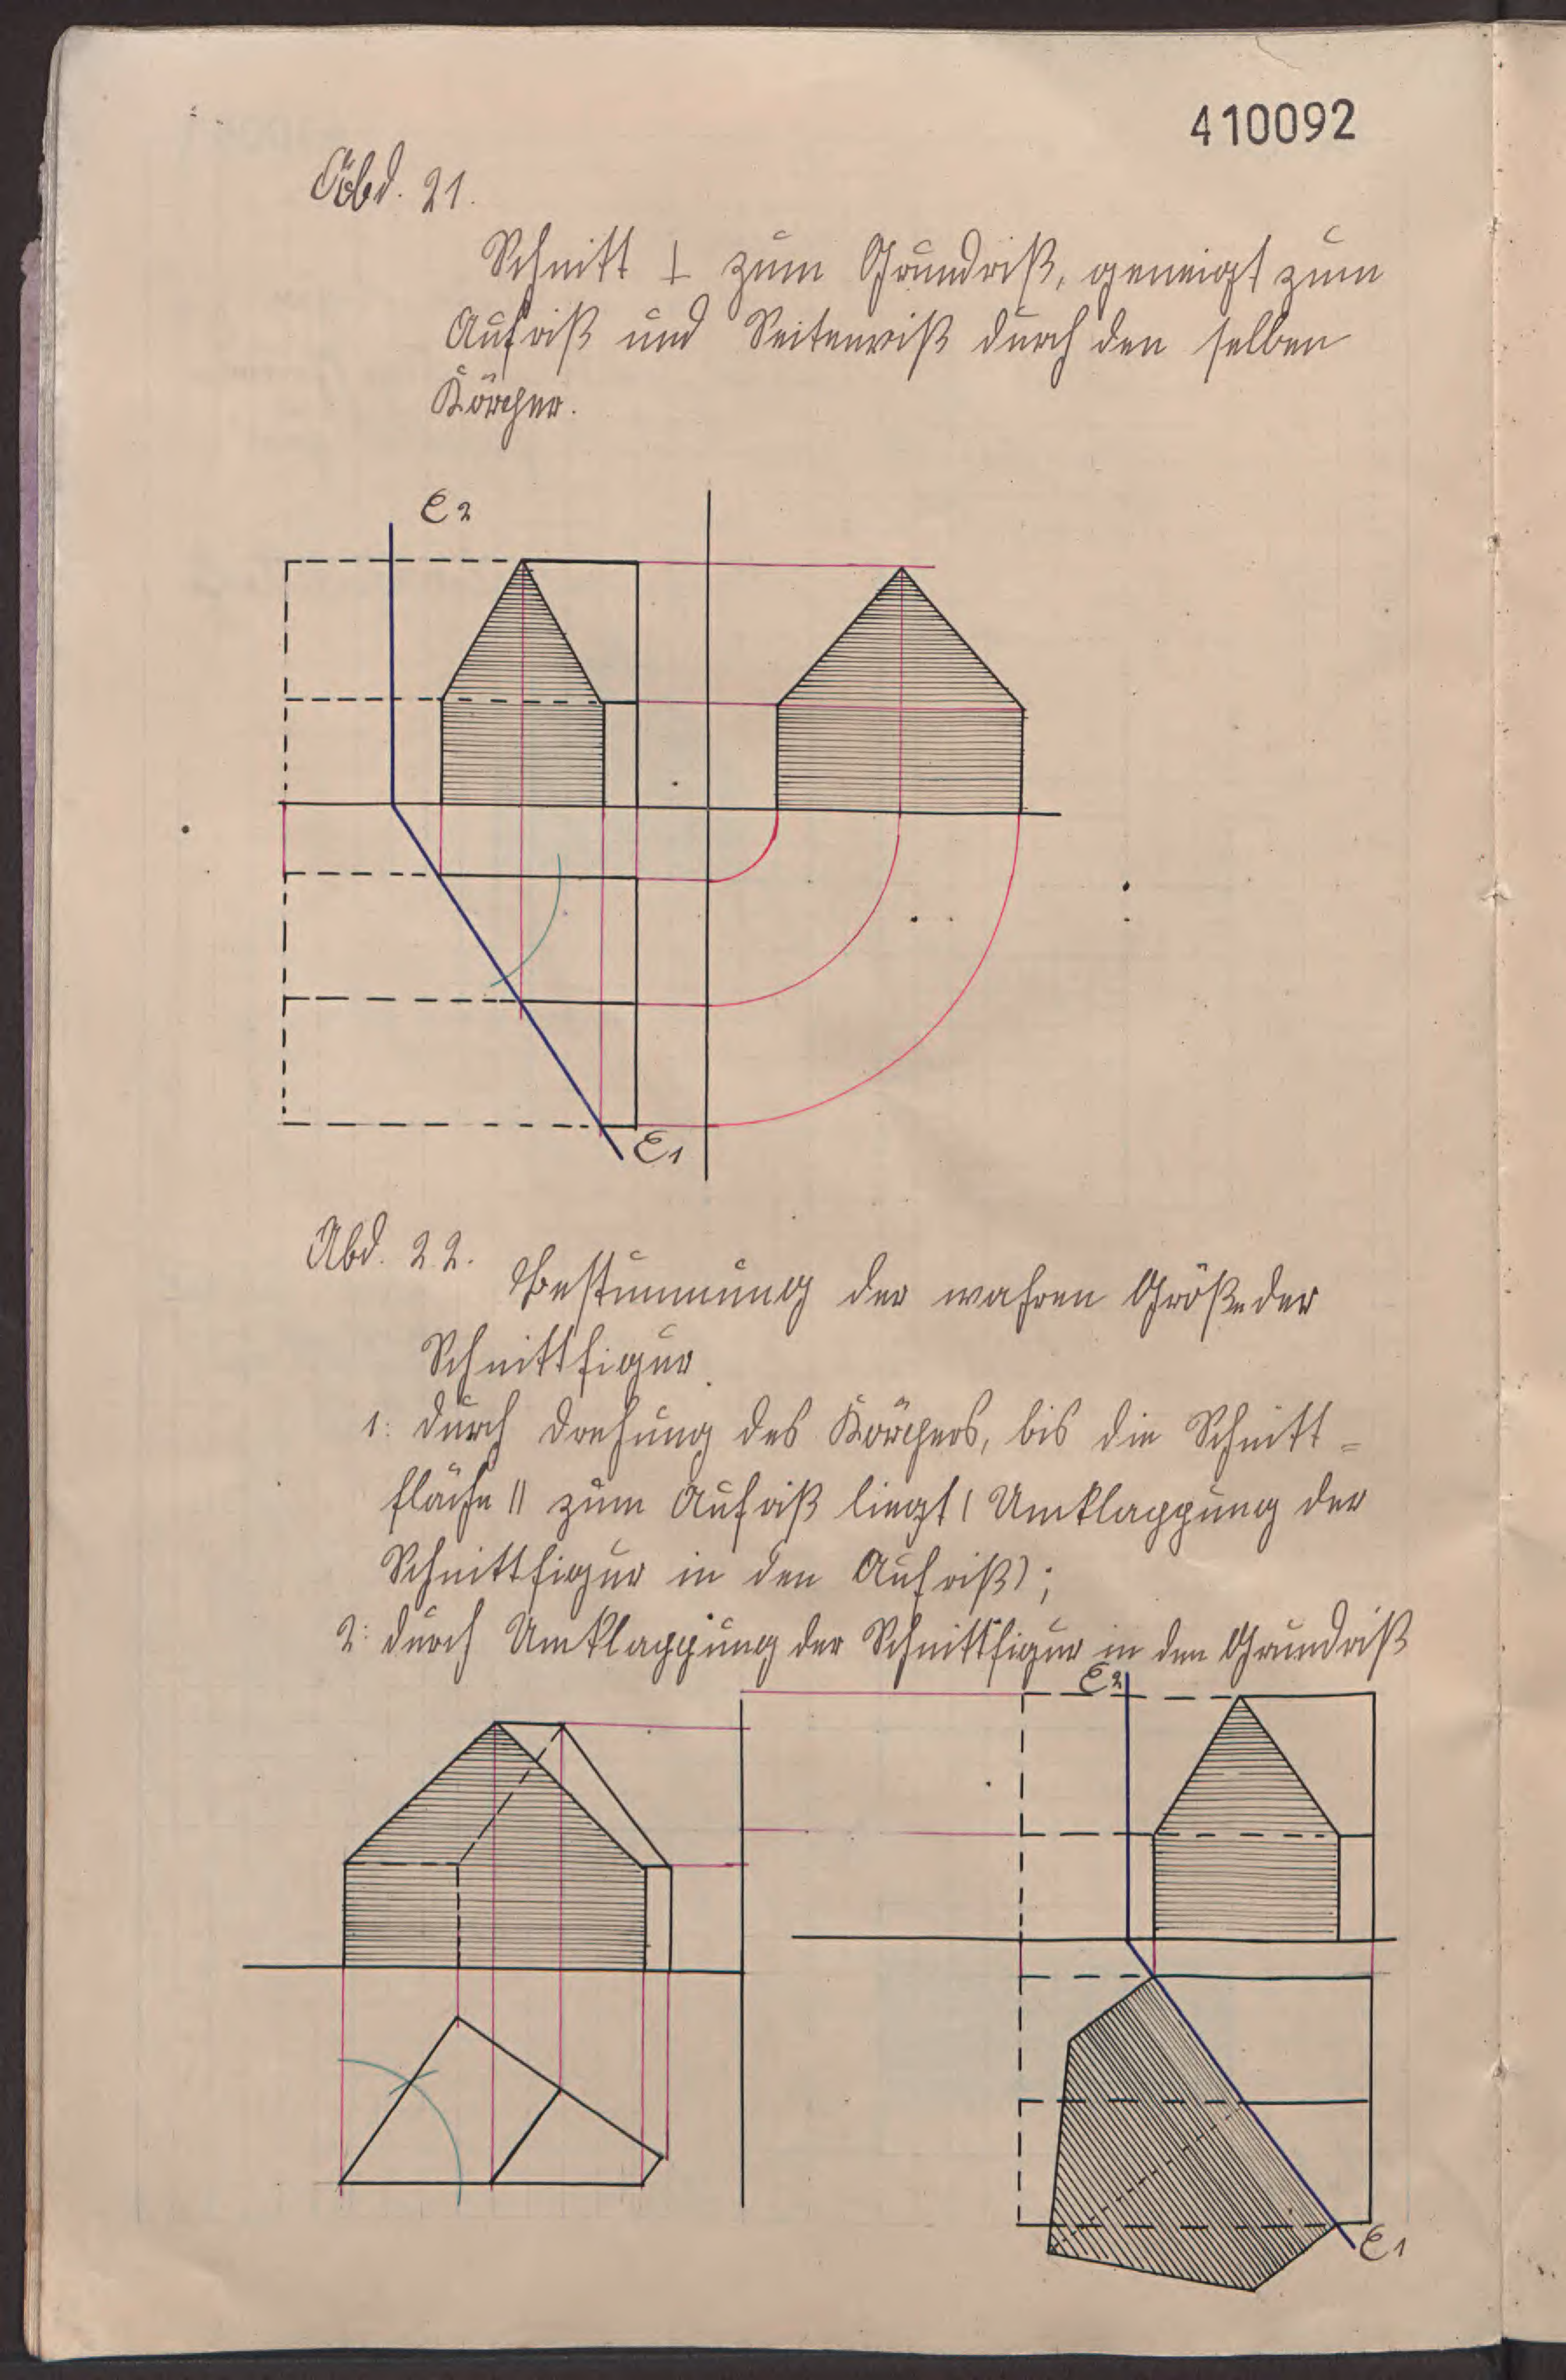 410092
Abd. 21.
Schnitt ⊥ zum Grundriß, geneigt zum
Aufriß und Seitenriß durch den selben
Körper.
e2
e1
Abd. 22.
Bestimmung der wahren Größe der
Schnittfigur.
1: durch Drehung des Körpers, bis die Schnitt=
fläche || zum Aufriß liegt (Umklappung der
Schnittfigur in den Aufriß);
2: durch Umklappung der Schnittfigur in den Grundriß
e2
e1